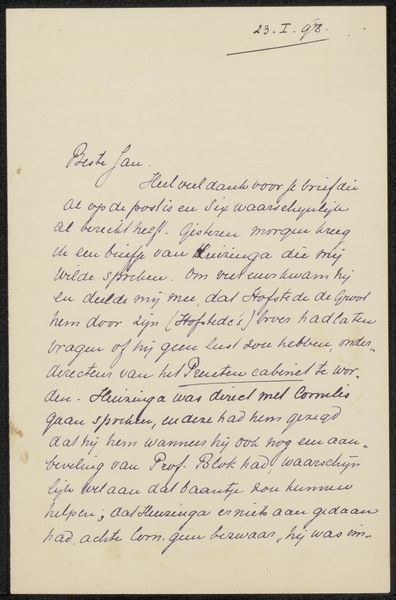 23. I. 98.
Beste Jan.
Heel veel dank voor je brief die
al op de post is en Six waarschijnlijk
al bereikt heeft. Gisteren morgen kreeg
ik een briefje van Huizinga die mij
wilde spreken. Om vier uur kwam hij
en deelde mij mee, dat Hofstede de Groot
hem door zijn (Hofstede's) broer had laten
vragen of hij geen lust zou hebben, onder-
directeur van het Prenten cabinet te wor-
den. Huizinga was direct met Cornelis
gaan spreken, en deze had hem gezegd
dat hij hem wanneer hij ook nog een aan-
beveling van Prof. Blok had, waarschijn
lijk wel aan dat baantje zou kunnen
helpen; dat Huizinga er niets aan gedaan
had, achtte Corn. geen bezwaar, hij was im-